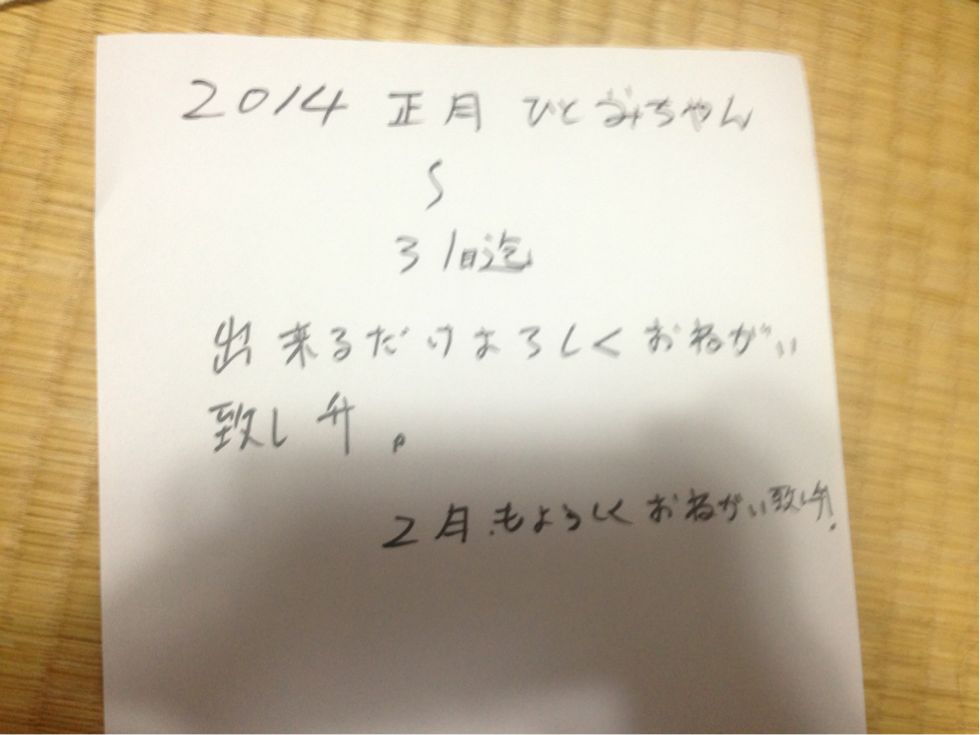 2014 正月 ひとみちゃん
〜
31日迄
出来るだけよろしくおねがい
致し升。
2月もよろしくおねがい致し升。